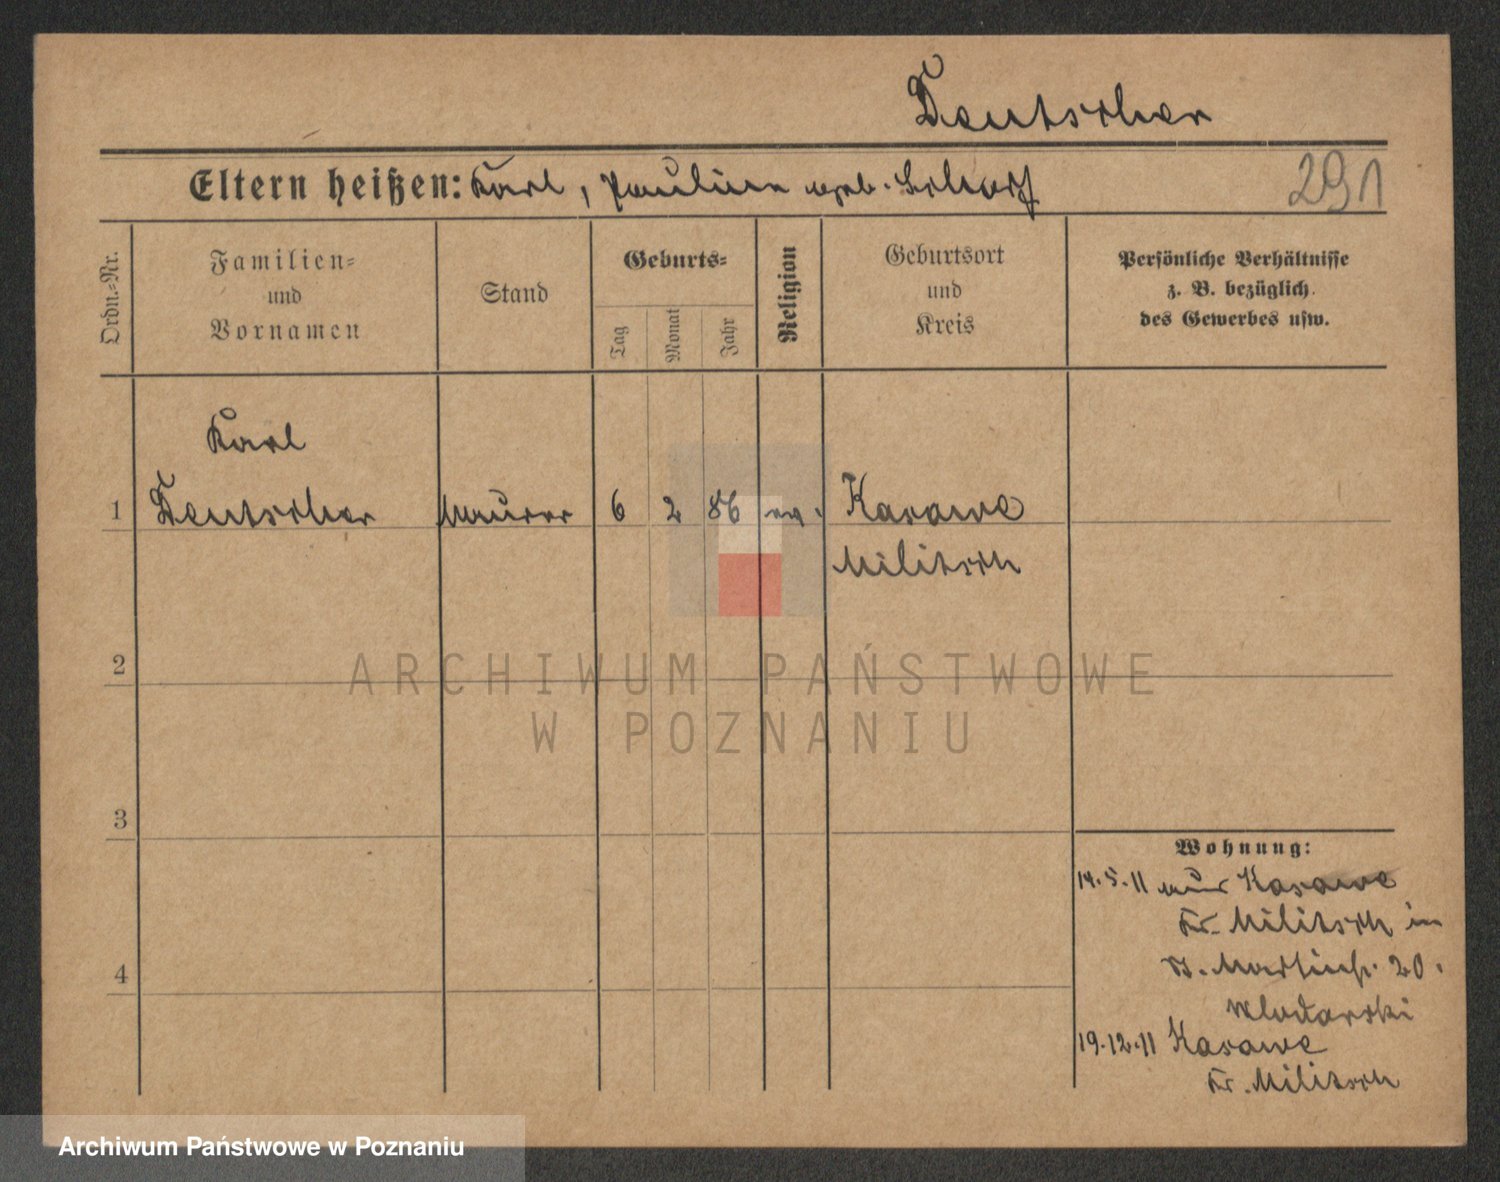 Deutscher
Eltern heißen: Karl, Pauline geb. Scharf
291
Ordn.-Nr.
Familien-
und
Vornamen
Stand
Geburts-
Tag
Monat
Jahr
Religion
Geburtsort
und
Kreis
Persönliche Verhältnisse
z. B. bezüglich
des Gewerbes usw.
Karl
1 Deutscher Maurer 6 2 86 ev. Kasawe
Militsch
2
ARCHIWUM PAŃSTWOWE
W POZNANIU
3
Wohnung:
14.5.11 aus Kasawe
Kr. Militsch in
St. Martinstr. 20.
4
Wlodarski
19.12.11 Kasawe
Kr. Militsch
Archiwum Państwowe w Poznaniu